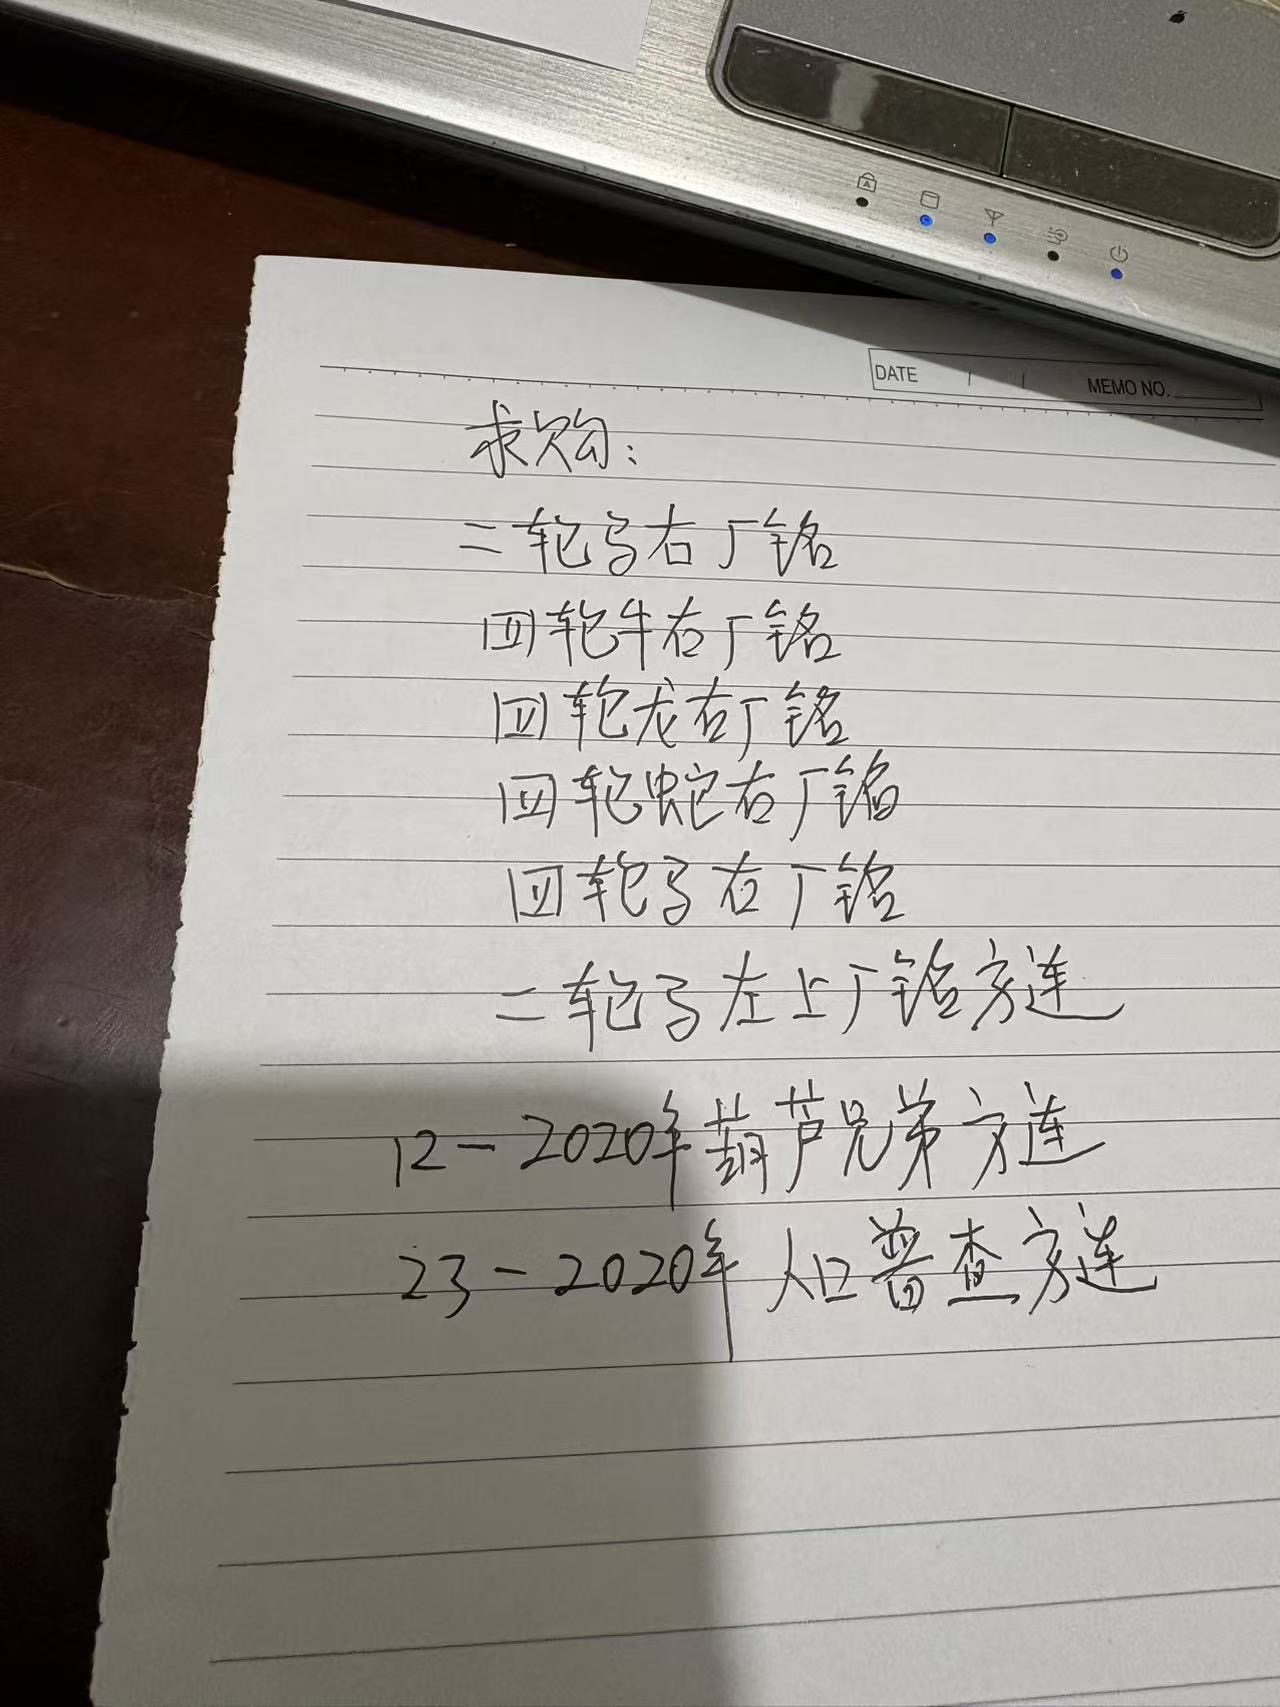 DATE
MEMO NO.
求购：
二轮马右厂铭
四轮牛右厂铭
四轮龙右厂铭
四轮蛇右厂铭
四轮马右厂铭
二轮马左上厂铭方连
12-2020年葫芦兄弟方连
23-2020年人口普查方连